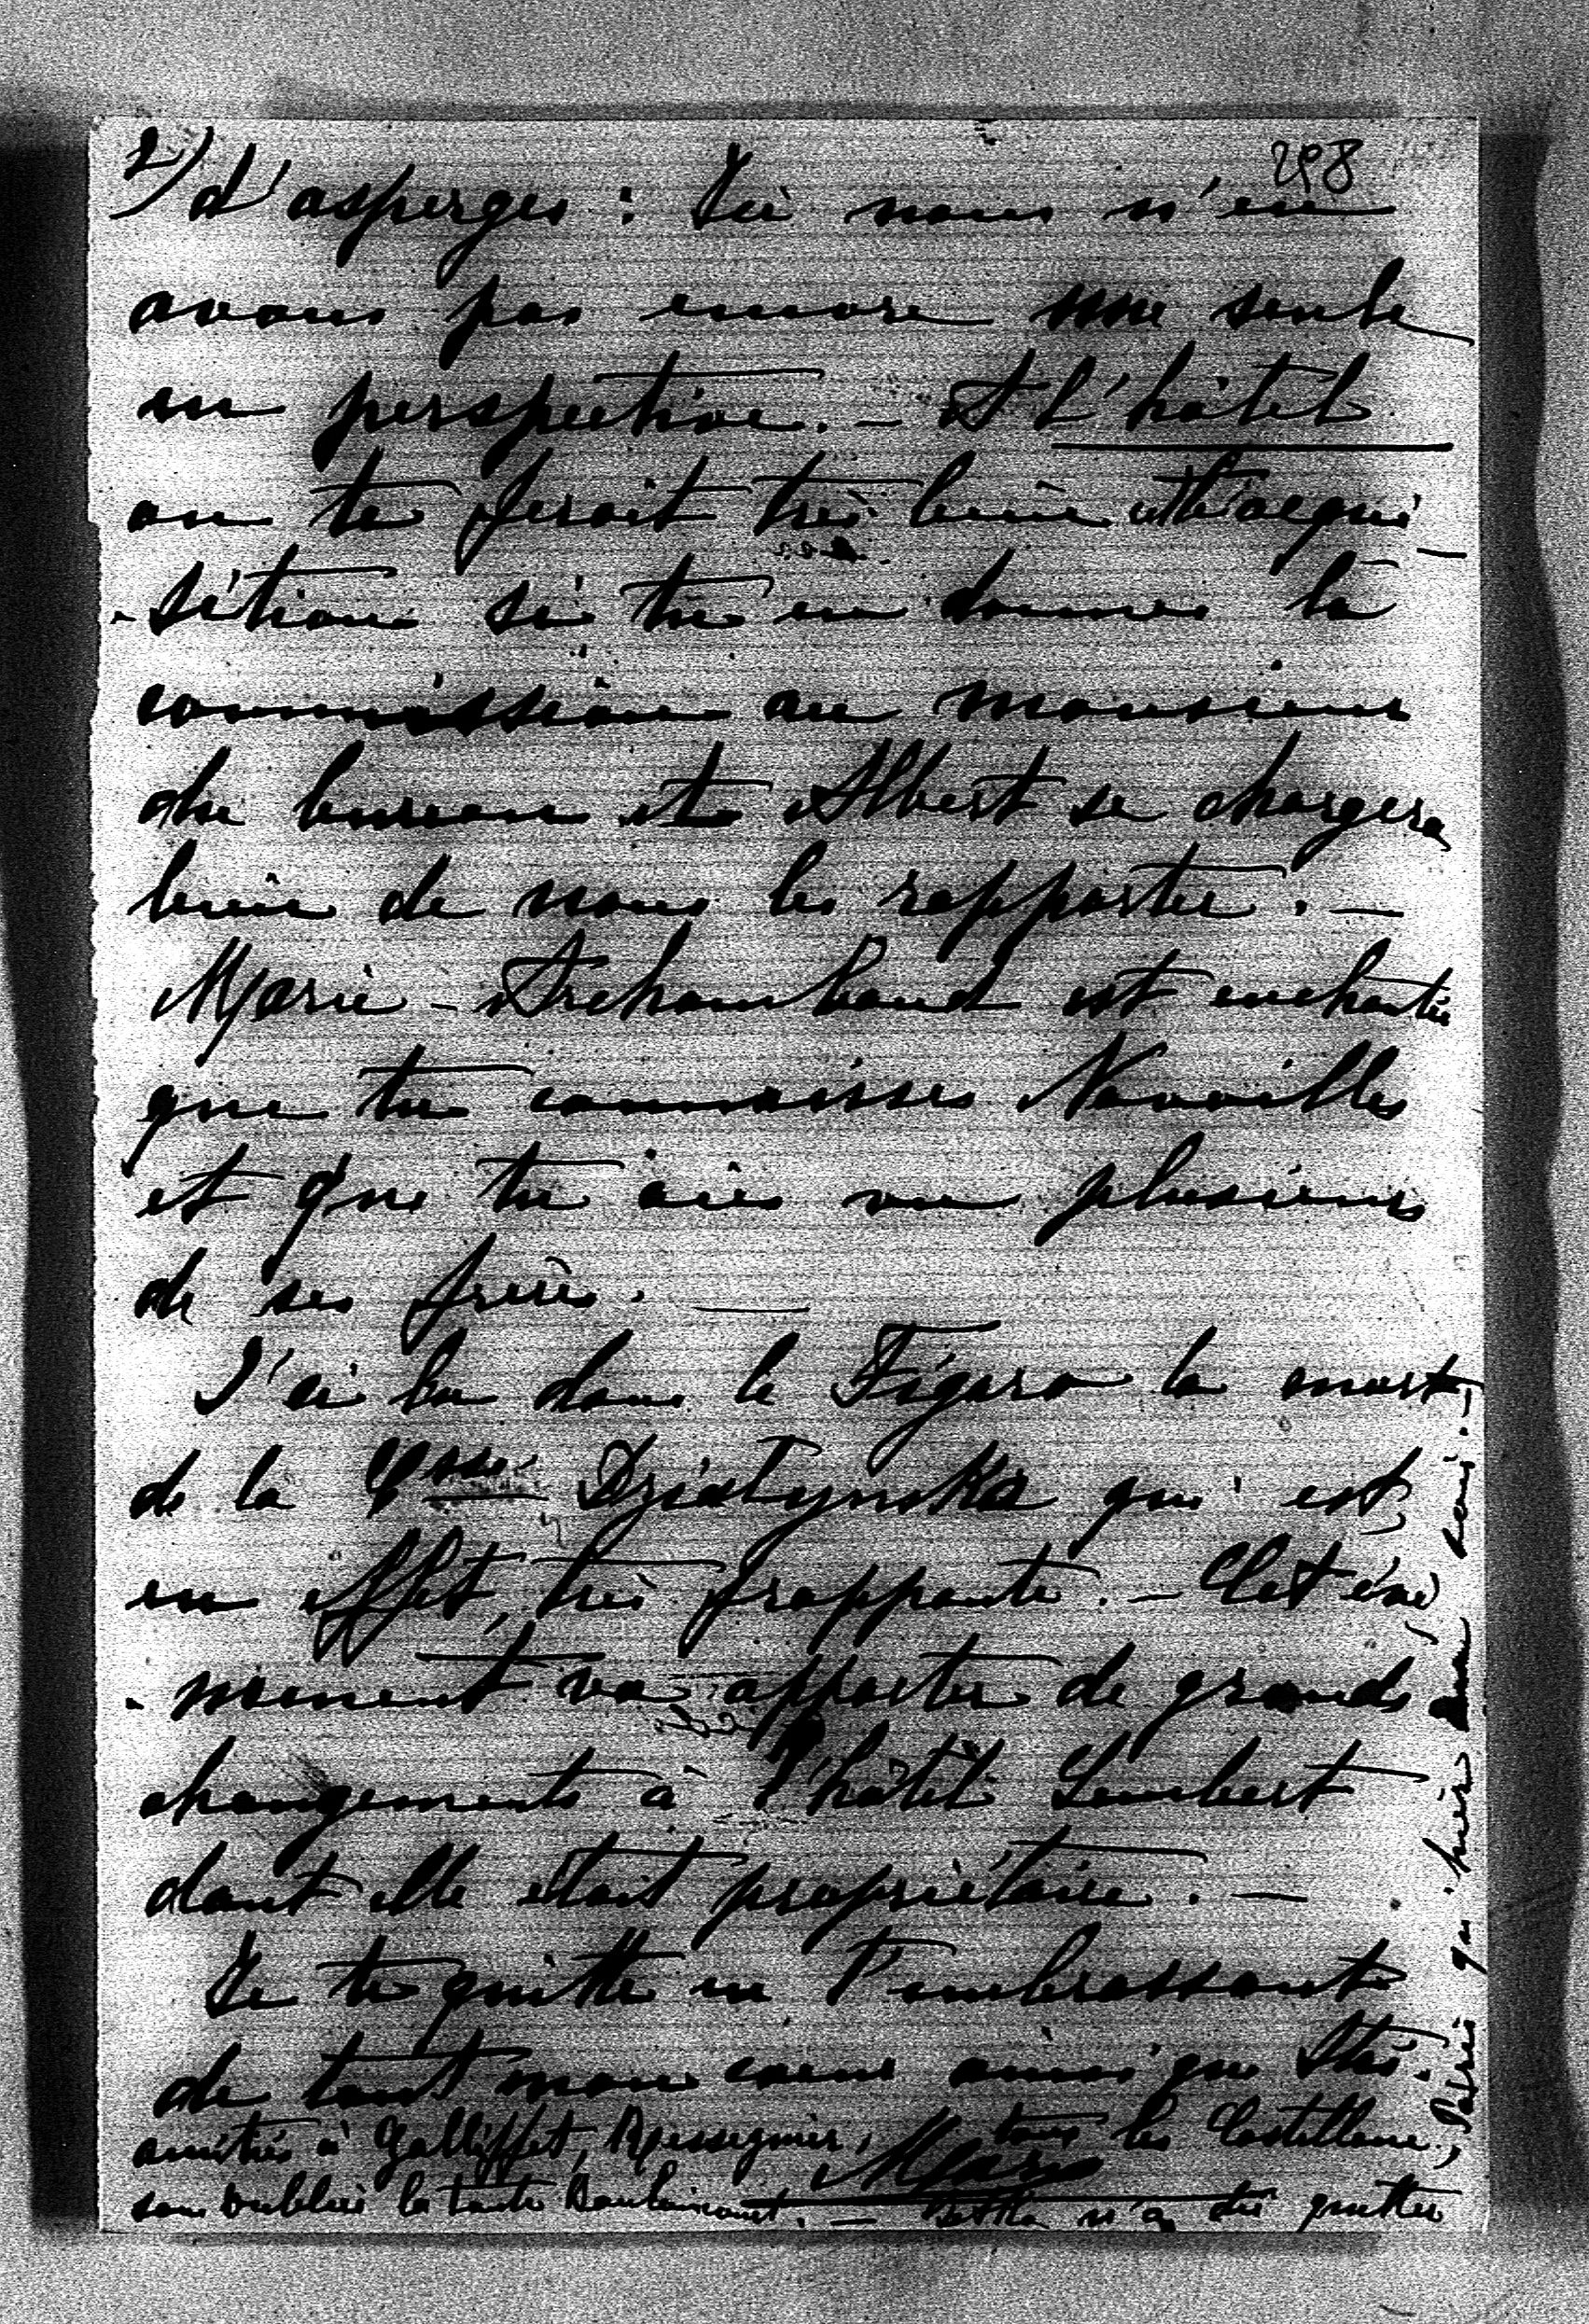 298
2) d'asperges : Ici nous n'en
avons pas encore une seule
en perspective. — A L'hôtel
on te feroit très bien cette acqui-
-sition si tu en donnes la
commission au monsieur
du bureau et Albert se chargera
bien de nous les rapporter. —
Marie - Archambaud est enchantée
que tu connaisses Navailles
et que tu aies vu plusieurs
de ses frères. —
J'ai lu dans le Figaro la mort
de la Csse Dzialynska qui est,
en effet, très frappante. — Cet évé
-nement va apporter de grands
changements à l'hôtel Lambert
dont elle était propriétaire. —
Je te quitte en t'embrassant
de tout mon coeur ainsi que
amitiés à Galliffet, Rességuier, tous les Castellane,
Marie
sans oublier la tante Baulincourt. — n'a dû quitter
Paris qu'hier soir. —